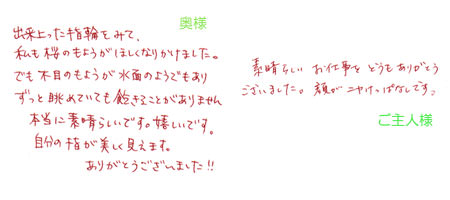 奥様
出来上った指輪をみて、
私も桜のもようがほしくなりかけました。
でも木目のもようが水面のようでもあり
ずっと眺めていても飽きることがありません
本当に素晴らしいです。嬉しいです。
自分の指が美しく見えます。
ありがとうございました!!
素晴らしい お仕事を どうもありがとう
ございました。 顔が ニヤけっぱなしです。
ご主人様